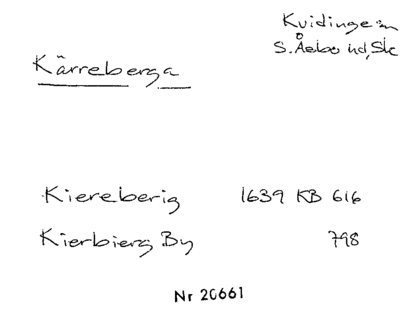 Kvidinge sn
S. Åsbo hd, Sk
Kärreberga
Kiereberig 1639 KB 616
Kierbierg By 798
Nr 20661